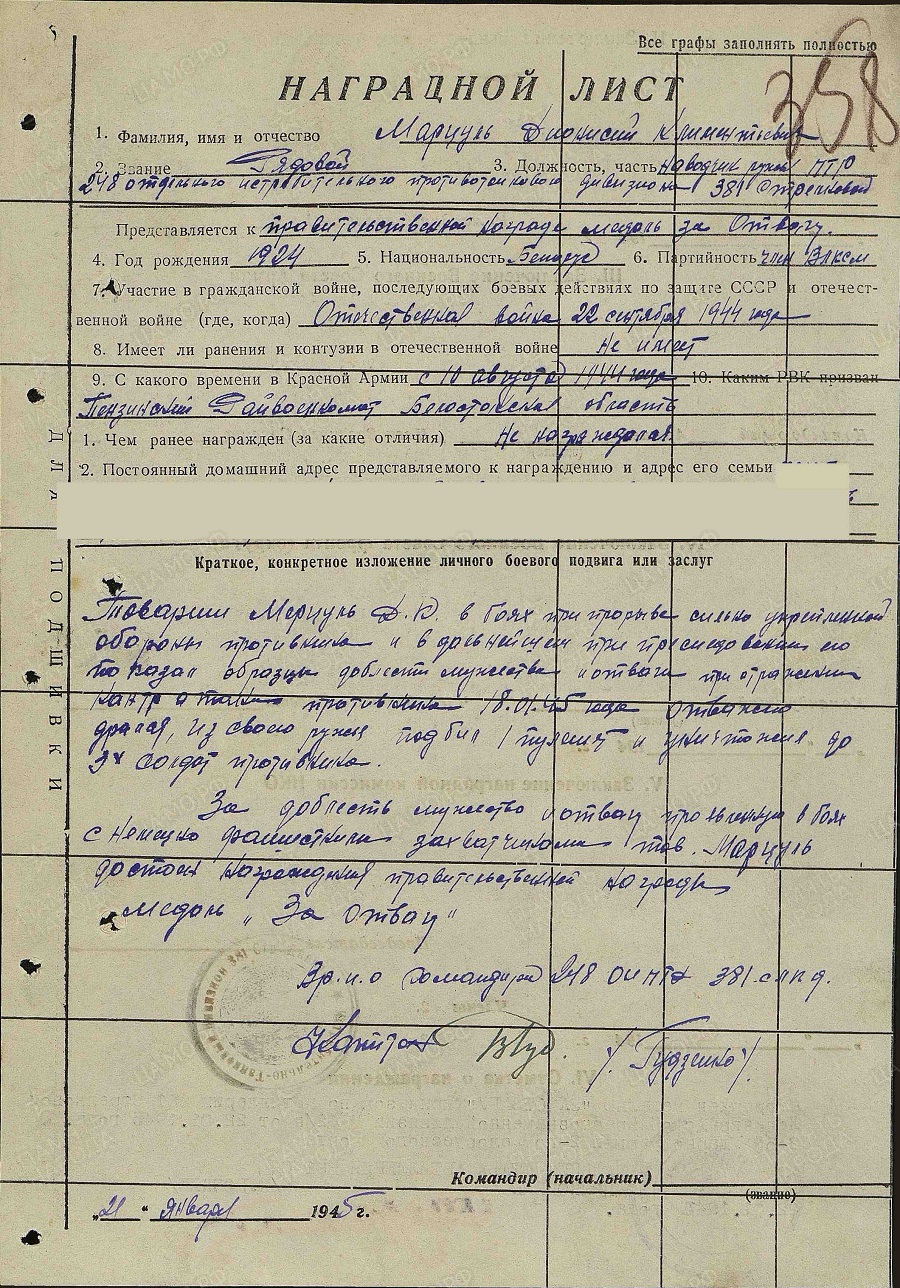 358
Все графы заполнять полностью
НАГРАДНОЙ ЛИСТ
1. Фамилия, имя и отчество Марцуль Дионисий Климентьевич
2. Звание Рядовой 3. Должность, часть наводчик ружья ПТР
248 отдельного истребительного противотанкового дивизиона 381 Стрелковой
Представляется к правительственной награде медаль за Отвагу.
4. Год рождения 1924 5. Национальность Белорус 6. Партийность член ВЛКСМ
7. Участие в гражданской войне, последующих боевых действиях по защите СССР и отечест-
венной войне (где, когда) Отечественная война 22 сентября 1944 года
8. Имеет ли ранения и контузии в отечественной войне Не имеет
9. С какого времени в Красной Армии с 10 августа 1944 года 10. Каким РВК призван
Райвоенкомат Белостокская область
1. Чем ранее награжден (за какие отличия) Не награждался
2. Постоянный домашний адрес представляемого к награждению и адрес его семьи
Краткое, конкретное изложение личного боевого подвига или заслуг
Товарищ Марцуль Д.К. в боях при прорыве сильно укрепленной
обороны противника и в дальнейшем при преследовании его
показал образцы доблести мужества и отваги при отражении
контратаки противника 18.01.45 года отважно
дрался, из своего ружья подбил 1 пулемет и уничтожил до
3х солдат противника.
За доблесть мужество и отвагу проявленную в боях
с немецко фашистскими захватчиками тов. Марцуль
достоин награждения правительственной награды
медаль „За отвагу"
Вр.и.о командира 248 ОИПТД 381 с.к.д.
Капитан /Гудзенко/.
Командир (начальник)
(звание)
„21" января 1945 г.
ДЛЯ ПОДШИВКИ